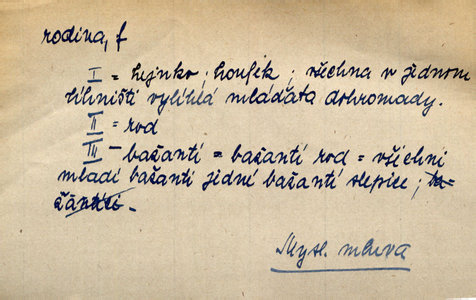 rodina, f
I = hejnko; houfek; všechna v jednom
líhništi vylíhlá mláďata dohromady.
II = rod
III – bažantí = bažantí rod = všichni
mladí bažanti jedné bažantí slepice; ba=
žantíci.
Mysl. mluva